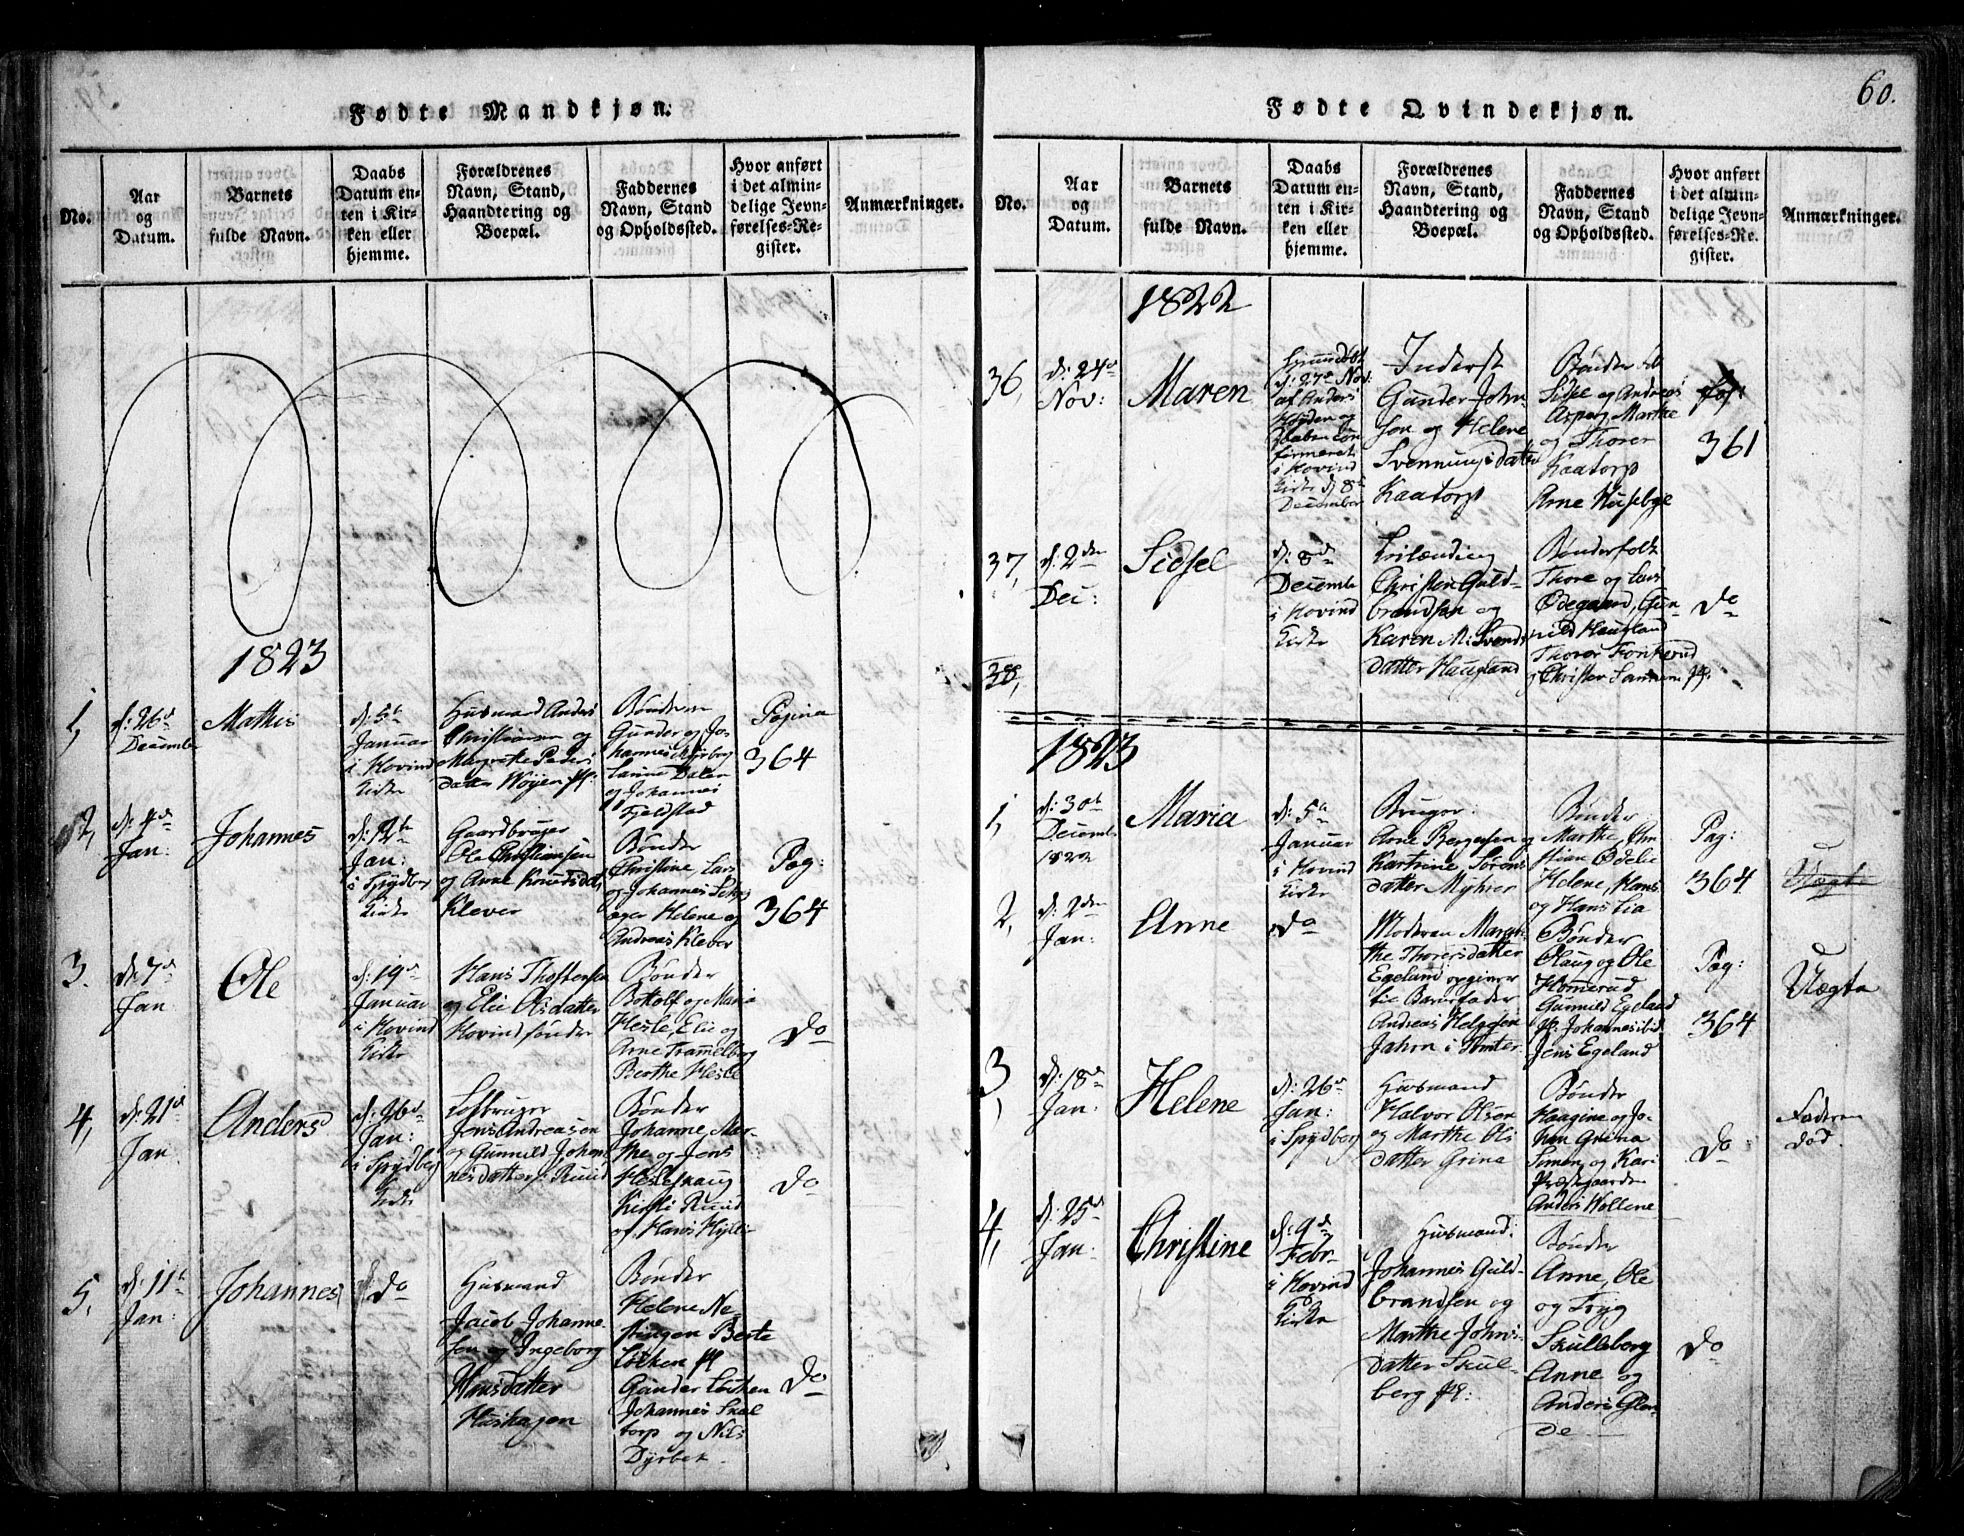 60.
Fødte Mandkjøn.
No.
Aar
og
Datum.
Barnets
fulde Navn.
Daabs
Datum en-
ten i Kir-
ken eller
hjemme.
Forældrenes
Navn, Stand,
Haandtering og
Boepæl.
Faddernes
Navn, Stand
og Opholdssted.
Hvor anført
i det almin-
delige Jevn-
førelses-Re-
gister.
Anmærkninger.
1823
1,
d: 26d
Decemb
Mathis
d: 5t
Januar
i Hovind
Kirke
Husmand Anders
Christiansen og
Margrethe Peders
datter
Bønder
Gunder og Jo-
hannes
og Johannes
Fjeldstad
Pagina
364
2,
d: 4de
Jan:
Johannes
d: 12t
Jan:
i Spydberg
Kirke
Gaardbruger
Ole Christiansen
og Anne Knudsdatter
Klever
Bønder
Christine, Lars
og Johannes
Helene og
Andreas Klever
Pag:
364
3.
d: 7d
Jan
Ole
d: 19d
Januar
i Hovind
Kirke
Hans Thostensen
og Elie Olsdatter
Hovind søndre
Bønder
Bottolf og Maria
Hesle, Elie og
Arne Trammelborg
Berthe Hesle
do
4,
d: 21d
Jan
Anders
d: 26d
Jan:
i Spydberg
Kirke
Jens Andreasen
og Gunnild Johan
nesdatter Ruud
Bønder
Johanne Mar-
the og Jens
Kirsti Ruud
og Hans
do
5,
d: 11t
Jan:
Johannes
do
Husmand
Jacob Johanne
sen og Ingeborg
Hansdatter
Bønder
Helene Ne-
Løcken
Gunder Løcken
Johannes Skal
torp og Nils
Dyrbek
do
Fødte Qvindekjøn.
No.
Aar
og
Datum.
Barnets
fulde Navn.
Daabs
Datum en-
ten i Kir-
ken eller
hjemme.
Forældrenes
Navn, Stand,
Haandtering og
Boepæl.
Faddernes
Navn, Stand
og Opholdssted.
Hvor anført
i det almin-
delige Jevn-
førelses-Re-
gister.
Anmærkninger.
1822
36,
d: 24d
Nov:
Maren
Hjemmedøbt
d: 27d Nov:
af Anders
og
Daaben con
firmeret
i Hovind
Kirke d 8d
December
Inderst
Gunder John-
son og Helene
Svennungsdatter
Kaatorp
Sidse og Andreas
Marthe
og Thorer
Kaatorp
Arne Husebye
361
37,
d: 2den
Dec:
Sidsel
d: 8d
Decemb
i Hovind
Kirke
Christen Guld-
brandsen og
Karen M: Svends
datter Haugland
Bønderfolk
Thore og Lars
Ødegaard, Gun-
nild Haugland
Thorer
og Christen
do
38,
1823
1,
d: 30t
Decemb.
1822
Maria
d: 5t
Januar
i Hovind
Kirke
Bruger:
Arne Børgesen og
Kattrine Sørens
datter Myhrer
Bønder
Marthe, Chri
stian Ødelie
Helene, Hans
og Hans Lia
Pag:
364
Uægte
2,
d: 2den
Jan:
Anne
do
Moderen Margre
the Thorersdatter
Egeland opgiver
til Barnefader
Andreas Helgesen
Jahren i Tomter
Bønder
Olaug og Ole
Homerud
Gunnild Egeland
Johannes ibid
Jens Egeland
Pag:
364
Uægte
3,
d: 18d
Jan:
Helene
d: 26d
Jan:
i Spydberg
Husmand
Halvor Olsen
og Marthe Ols
datter Grina
Bønder
Haagine og Jo-
han Grina
Simen og Kari
Præstegaarden
Anders Hollene
do
Faderen
død.
4,
d: 25d
Jan:
Christine
d: 9d
Febr
i Hovind
Kirke
Husmand:
Johannes Guld-
brandsen og
Marthe Johns-
datter Skul-
berg
Bønder
Anne, Ole
og Tryg
Skulleberg
Anne og
Anders Glen-
de
do